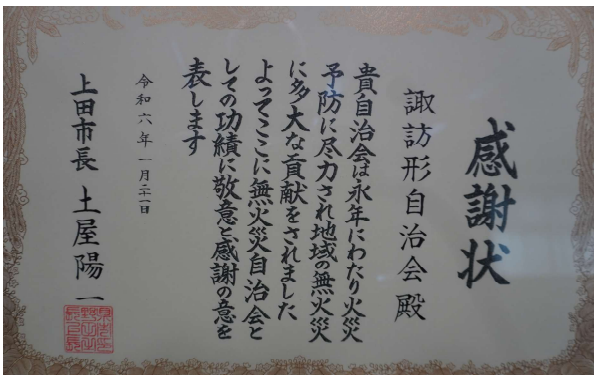 感謝状
諏訪形自治会殿
貴自治会は永年にわたり火災
予防に尽力され地域の無火災
に多大な貢献をされました
よってここに無火災自治会と
しての功績に敬意と感謝の意を
表します
令和六年一月二十一日
上田市長 土屋陽一